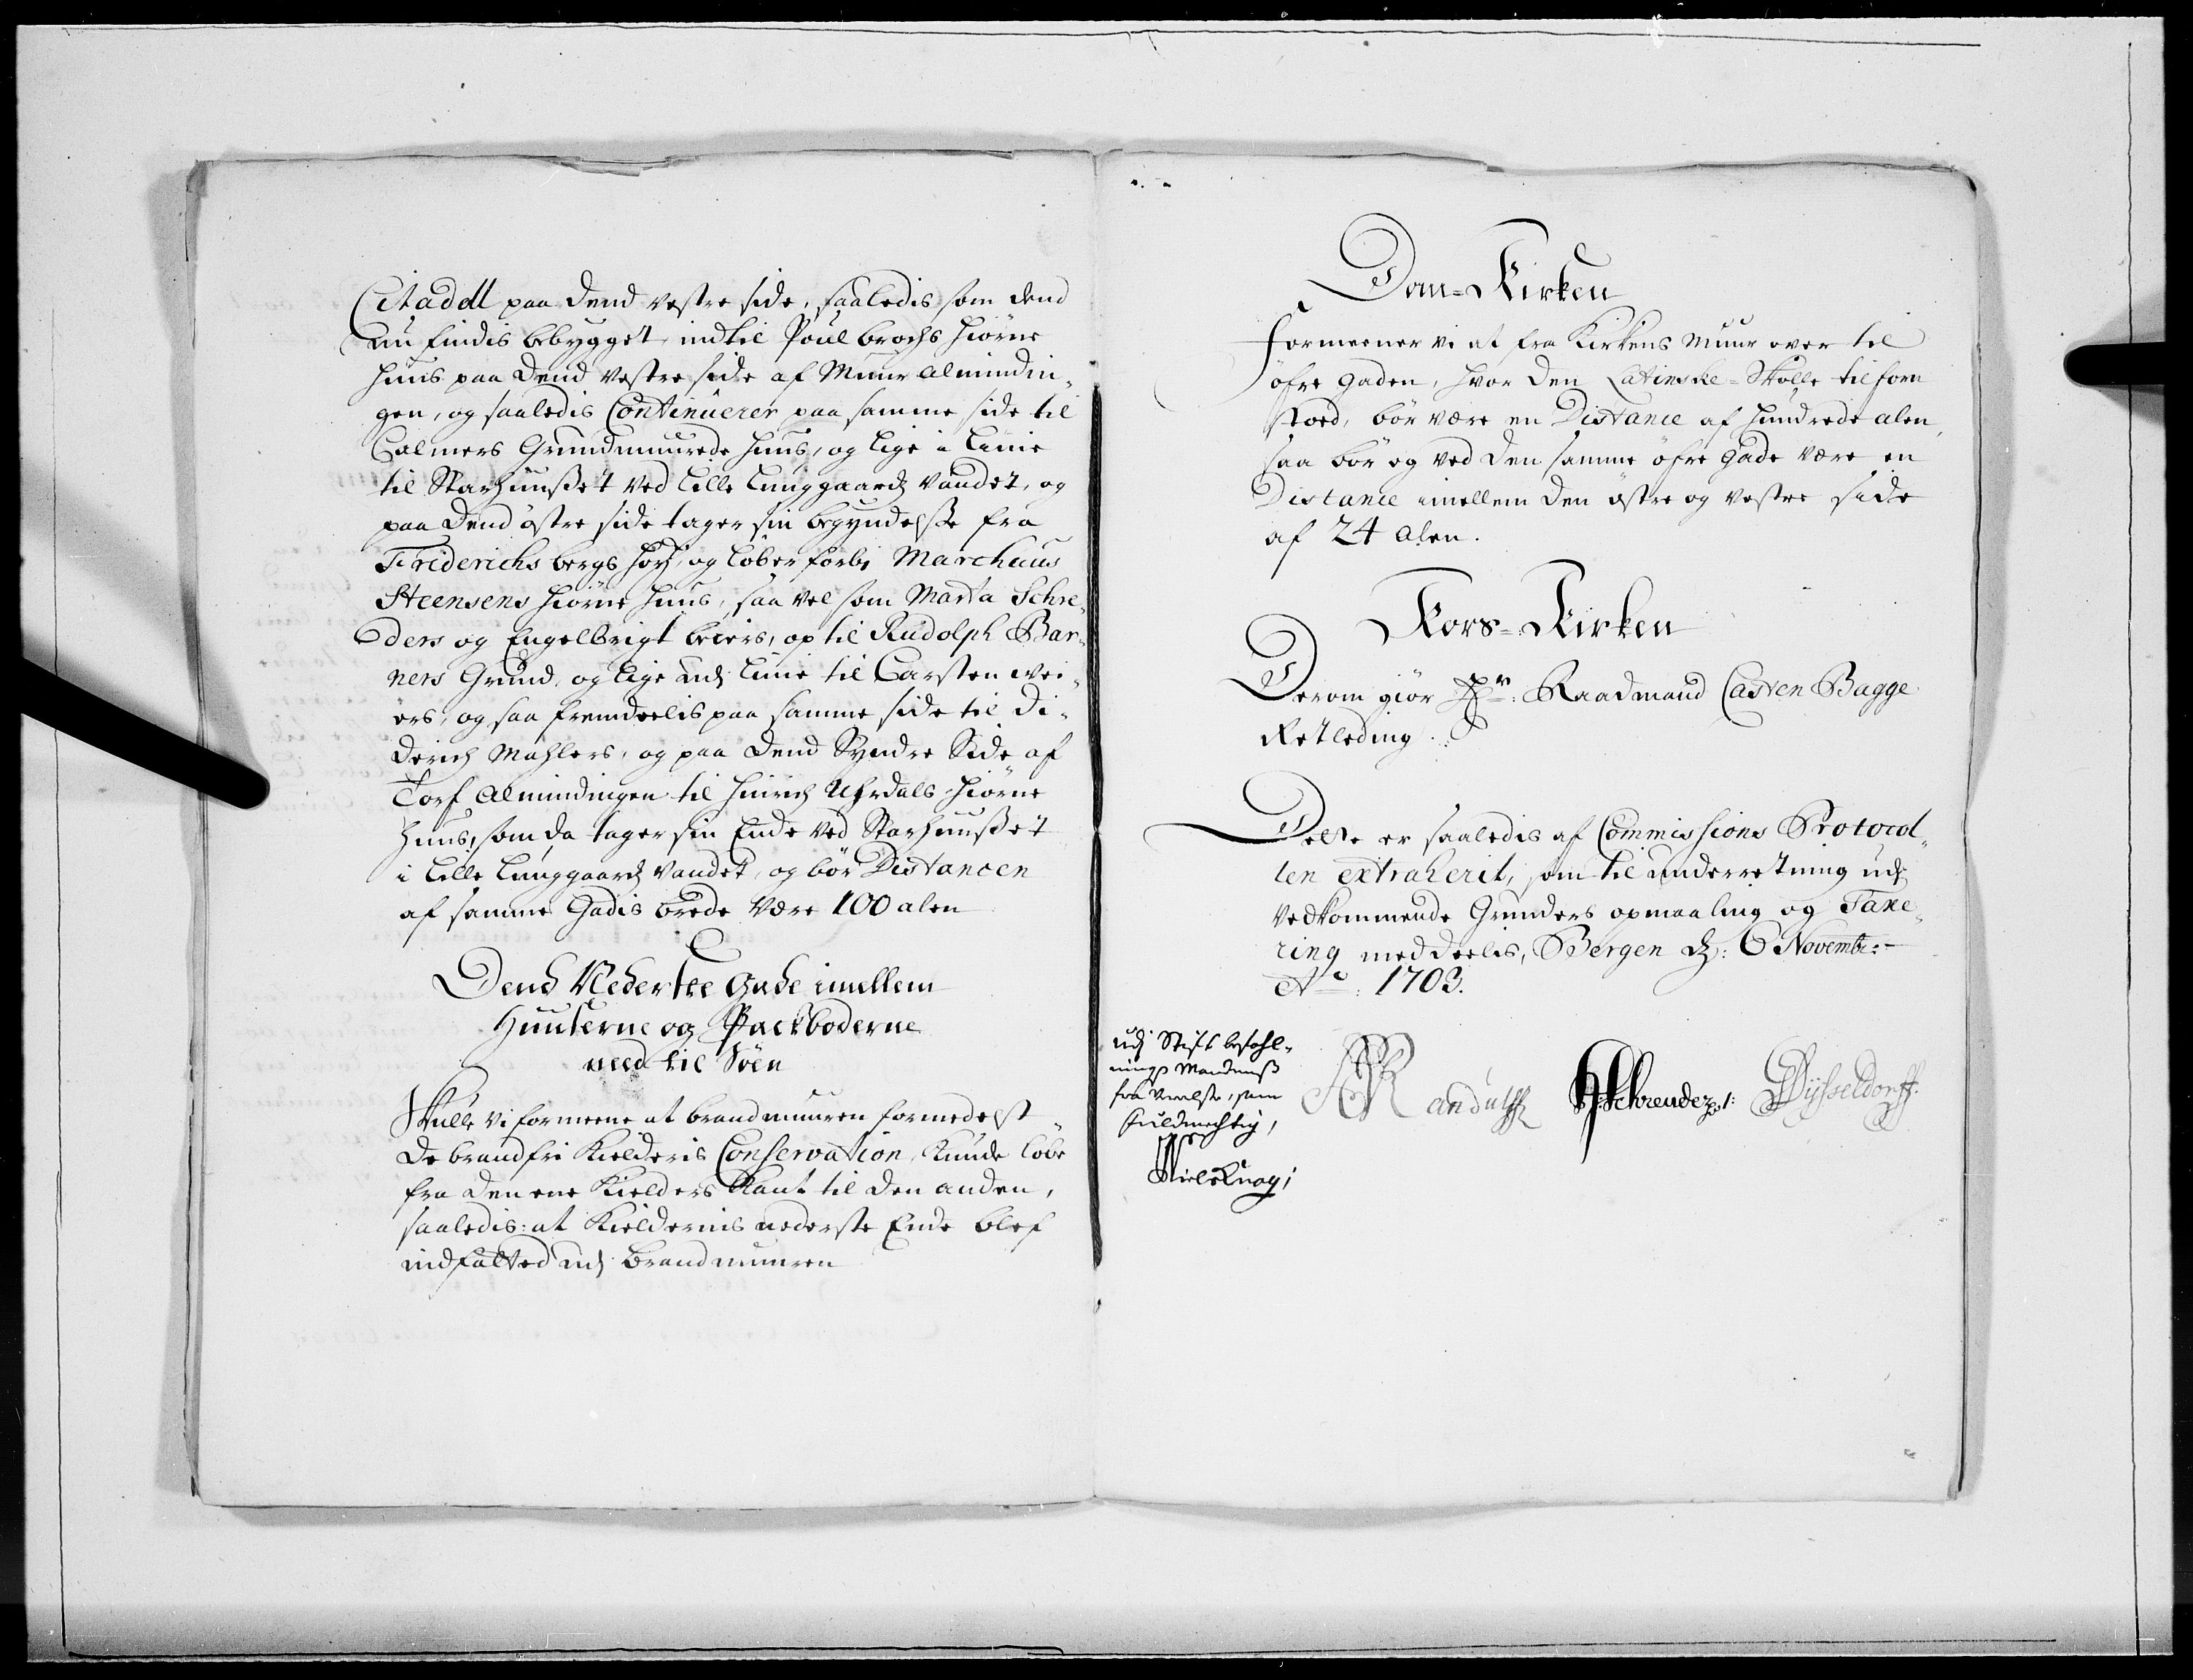 Citadell paa dend vestre side, saaledis som dend
nu findis bebygget indtil Poul brochs hiörne
huus paa dend vestre side af Muur almindin-
gen, og saaledis Continuerer paa samme side til
Calmers Grundmuurede huus, og lige i linie
til Starhuusset ved lille lunggaards vandet, og
paa dend östre side tager sin begyndelsse fra
Friderichs bergs hoy, og löber forbi Marchuus
Steensens hiörne huus, saa vel som Marta Schre-
ders og Engelbrigt beiers, op til Rudolph Bar-
ners Grund, og lige udj linie til Carsten wei-
ers, og saa fremdeelis paa samme side til Di-
derich Mahlers, og paa dend Syndre Side af
Torf Almindingen til hinrich Uhrdals hiörne
huus, som da tager sin Ende ved Starhuusset
i lille lunggaards vandet, og bör Distancen
af samme Gadis brede være 100 alen
Dend Nederste Gade imellem
Huuserne og Packboderne
need til Söen
Skulle vi formeene at brandmuuren formedelst
de brandfri Kielderis Conservation, kunde löbe
fra den ene Kielders Kant til den anden,
saaledis: at Kieldernis nederste Ende blef
indfatted udj brandmuuren
Dom-Kirken
formeener vi at fra Kirkens Muur over til
öfre gaden, hvor den Latinske-Skolle tilforn
stoed, bör være en Distance af hundrede alen,
saa bör og ved den samme öfre gade være en
Distance imellem den östre og vestre side
af 24 alen.
Kors-Kirken
Derom giör Hr: Raadmand Casten Bagge
Retleding.
Dette er saaledis af Commissions Protocol-
len extraherit, som til underretning udj
vedkommende Grunders opmaaling og Taxe-
ring meddeelis, Bergen d: 6 Novembr:
Ao: 1703.
udj Stift befahl-
nings Mandens
fra verelse, som
fuldmechtig,
Niels Knag,
Randulff
Schreuder
Dÿsseldorff.